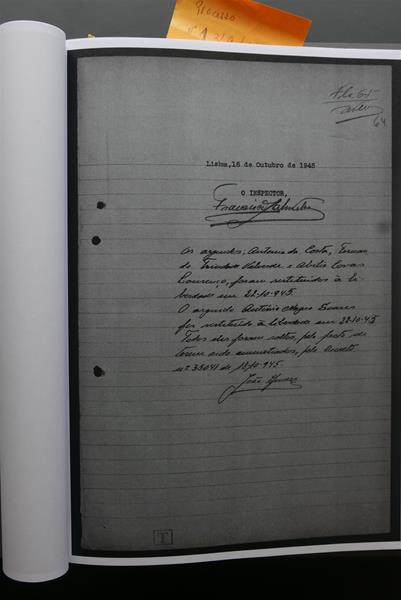 Processo
Fls 65
64
Lisboa, 18 de Outubro de 1945
O INSPECTOR,
Os arguidos, Antonio da Costa, Fernan
do Trindade Valverde e Abilio
Lourenço, foram restituidos à li
berdade em 22-10-945.
O arguido António Soares
foi restituido à liberdade em 22-10-45
Todos eles foram soltos, pelo facto de
terem sido amnistiados, pelo Decreto
nº 35041 de 18-10-945.
João
T